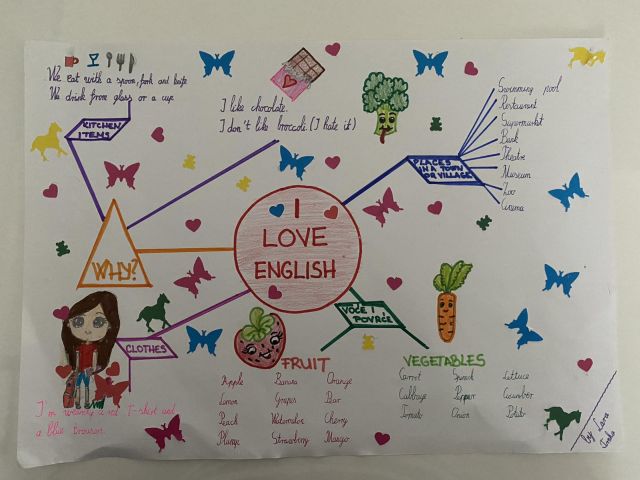 We eat with a spoon, fork and knife
We drink from glass or a cup
KITCHEN
ITEMS
I like chocolate.
I don't like broccoli. (I hate it)
PLACES
IN A TOWN
OR VILLAGE
Swimming pool
Restaurant
Supermarket
Bank
Theatre
Museum
Zoo
Cinema
I
LOVE
ENGLISH
WHY?
CLOTHES
I'm wearing a red T-shirt and
a blue
VOĆE I
POVRĆE
FRUIT
Apple Banana Orange
Lemon Grapes
Peach Watermelon Cherry
Strawberry Mango
VEGETABLES
Carrot Spinach Lettuce
Cabbage Pepper Cucumber
Tomato Onion Potato
by Lara